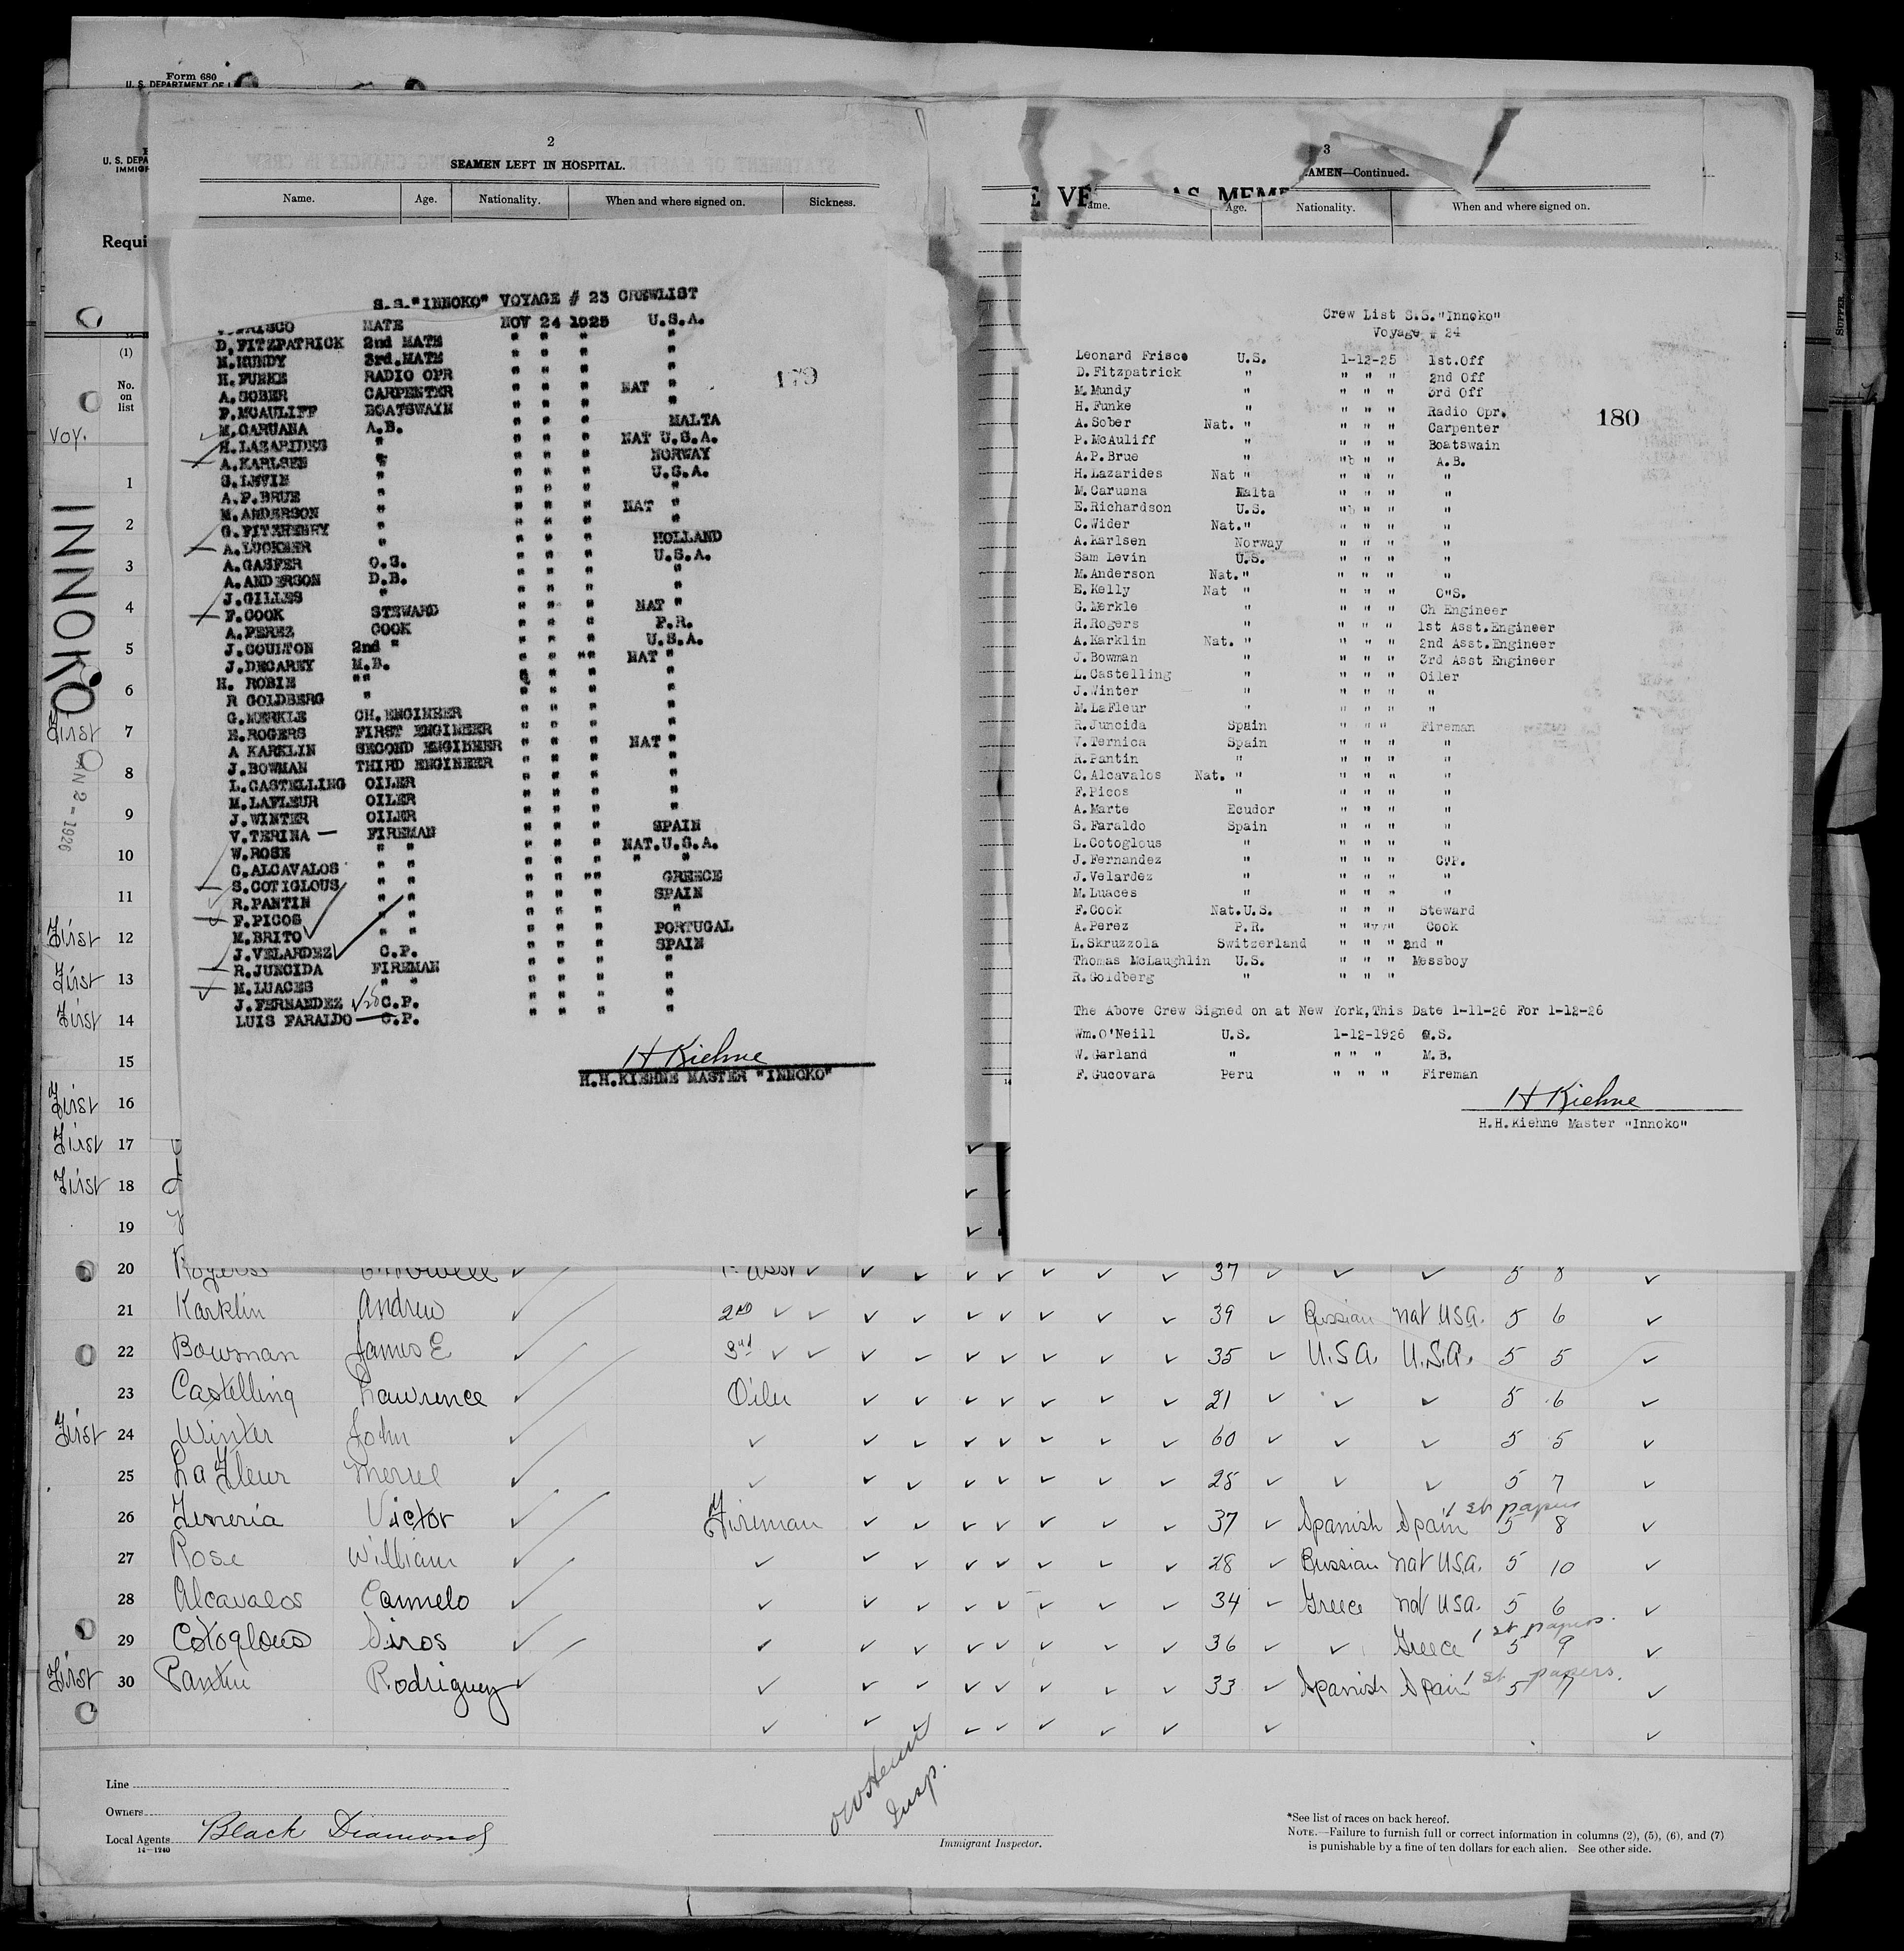 Form 680
U. S. DEPARTMENT OF
U. S. DEPA
IMMIG
Requi
2
SEAMEN LEFT IN HOSPITAL.
Name. Age. Nationality. When and where signed on. Sickness.
S.S."INNOKO" VOYAGE # 23 CREWLIST
MATE NOV 24 1925 U.S.A.
D.FITZPATRICK 2nd MATE " " " "
M.MUNDY 3rd.MATE " " " "
H.FUNKE RADIO OPR " " " "
A.SOBER CARPENTER " " " NAT "
P.MCAULIFF BOATSWAIN " " " "
M.CARUANA A.B. " " " MALTA
H.LAZARIDES " " " " NAT U.S.A.
A.KARLSEN " " " " NORWAY
S.LEVIN " " " " U.S.A.
A.P.BRUE " " " " "
M.ANDERSON " " " " NAT "
G.FITZHENRY " " " " "
A.LUCKNER " " " " HOLLAND
A.GASPER O.S. " " " U.S.A.
A.ANDERSON D.B. " " " "
J.GILLES " " " " "
F.COOK STEWARD " " " NAT "
A.PEREZ COOK " " " P.R.
J.COULTON 2nd " " " " U.S.A.
J.DECAREY M.B. " " "" NAT "
H. ROBIE "" " " " "
R GOLDBERG " " " " "
G.MERKLE CH.ENGINEER " " " "
H.ROGERS FIRST ENGINEER " " " "
A KARKLIN SECOND ENGINEER " " " NAT "
J.BOWMAN THIRD ENGINEER " " " "
L.CASTELLING OILER " " " "
M.LAFLEUR OILER " " " "
J.WINTER OILER " " " "
V.TERINA — FIREMAN " " " SPAIN
W.ROSE " " " " " NAT.U.S.A.
C.ALCAVALOS " " " " " " "
S.COTIGLOUS " " " " "" GREECE
R.PANTIN " " " " " SPAIN
F.PICOS " " " " " "
M.BRITO " " " " " PORTUGAL
J.VELARDEZ C.P. " " " SPAIN
R.JUNCIDA FIREMAN " " " "
M.LUACES " " " " " "
J.FERNANDEZ C.P. " " " "
LUIS FARALDO — C.P. " " " "
H Kiehne
H.H.KIEHNE MASTER "INNOKO"
179
3
AMEN—Continued.
E VE AS MEME
ame. Age. Nationality. When and where signed on.
Crew List S.S."Innoko"
Voyage # 24
Leonard Frisco U.S. 1-12-25 1st.Off
D. Fitzpatrick " " " " 2nd Off
M. Mundy " " " " 3rd Off
H. Funke " " " " Radio Opr.
A. Sober Nat. " " " " Carpenter
P. McAuliff " " " " Boatswain
A.P. Brue " " " " A.B.
H. Lazarides Nat " " " " "
M. Caruana Malta " " " "
E. Richardson U.S. " " " "
C. Wider Nat." " " " "
A. Karlsen Norway " " " "
Sam Levin U.S. " " " "
M. Anderson Nat." " " " "
E. Kelly Nat " " " " O"S.
G. Merkle " " " " Ch Engineer
H. Rogers " " " " 1st Asst.Engineer
A. Karklin Nat. " " " " 2nd Asst.Engineer
J. Bowman " " " " 3rd Asst Engineer
L. Castelling " " " " Oiler
J. Winter " " " " "
M. LaFleur " " " " "
R. Juncida Spain " " " Fireman
V. Ternica Spain " " " "
R. Pantin " " " " "
C. Alcavalos Nat. " " " " "
F. Picos " " " " "
A. Marte Ecudor " " " "
S. Faraldo Spain " " " "
L. Cotoglous " " " " "
J. Fernandez " " " " C"P.
J. Velardez " " " " "
M. Luaces " " " " "
F. Cook Nat.U.S. " " " Steward
A. Perez P.R. " " " Cook
L. Skruzzola Switzerland " " " 2nd "
Thomas McLaughlin U.S. " " " Messboy
R. Goldberg " " " "
The Above Crew Signed on at New York,This Date 1-11-26 For 1-12-26
Wm. O'Neill U.S. 1-12-1926 O.S.
W. Garland " " " " M.B.
F. Gucovara Peru " " " Fireman
H Kiehne
H.H.Kiehne Master "Innoko"
180
(1)
No. on list
Voy.
INNOKO
JAN 2 - 1926
1
2
3
4
5
6
First 7
8
9
10
11
First 12
First 13
First 14
15
First 16
First 17
First 18
19
20 Rogers 1st Asst 37 5 8
21 Karklin Andrew 2nd 39 Russian nat USA. 5 6
22 Bowman James E 3rd 35 U.S.A. U.S.A. 5 5
23 Castelling Lawrence Oiler 21 5 6
First 24 Winter John 60 5 5
25 La Fleur Merrel 25 5 7
26 Victor Fireman 37 Spanish Spain 1st papers 5 8
27 Rose William 28 Russian nat USA. 5 10
28 Alcavalos Carmelo 34 Greece nat USA. 5 6
29 Cotoglous Siros 36 Greece 1st papers. 5 9
First 30 Pantin Rodriguez 33 Spanish Spain 1st papers. 5 7
Line
Owners
Local Agents Black Diamond
14—1240
Insp.
Immigrant Inspector.
*See list of races on back hereof.
NOTE.—Failure to furnish full or correct information in columns (2), (5), (6), and (7)
is punishable by a fine of ten dollars for each alien. See other side.